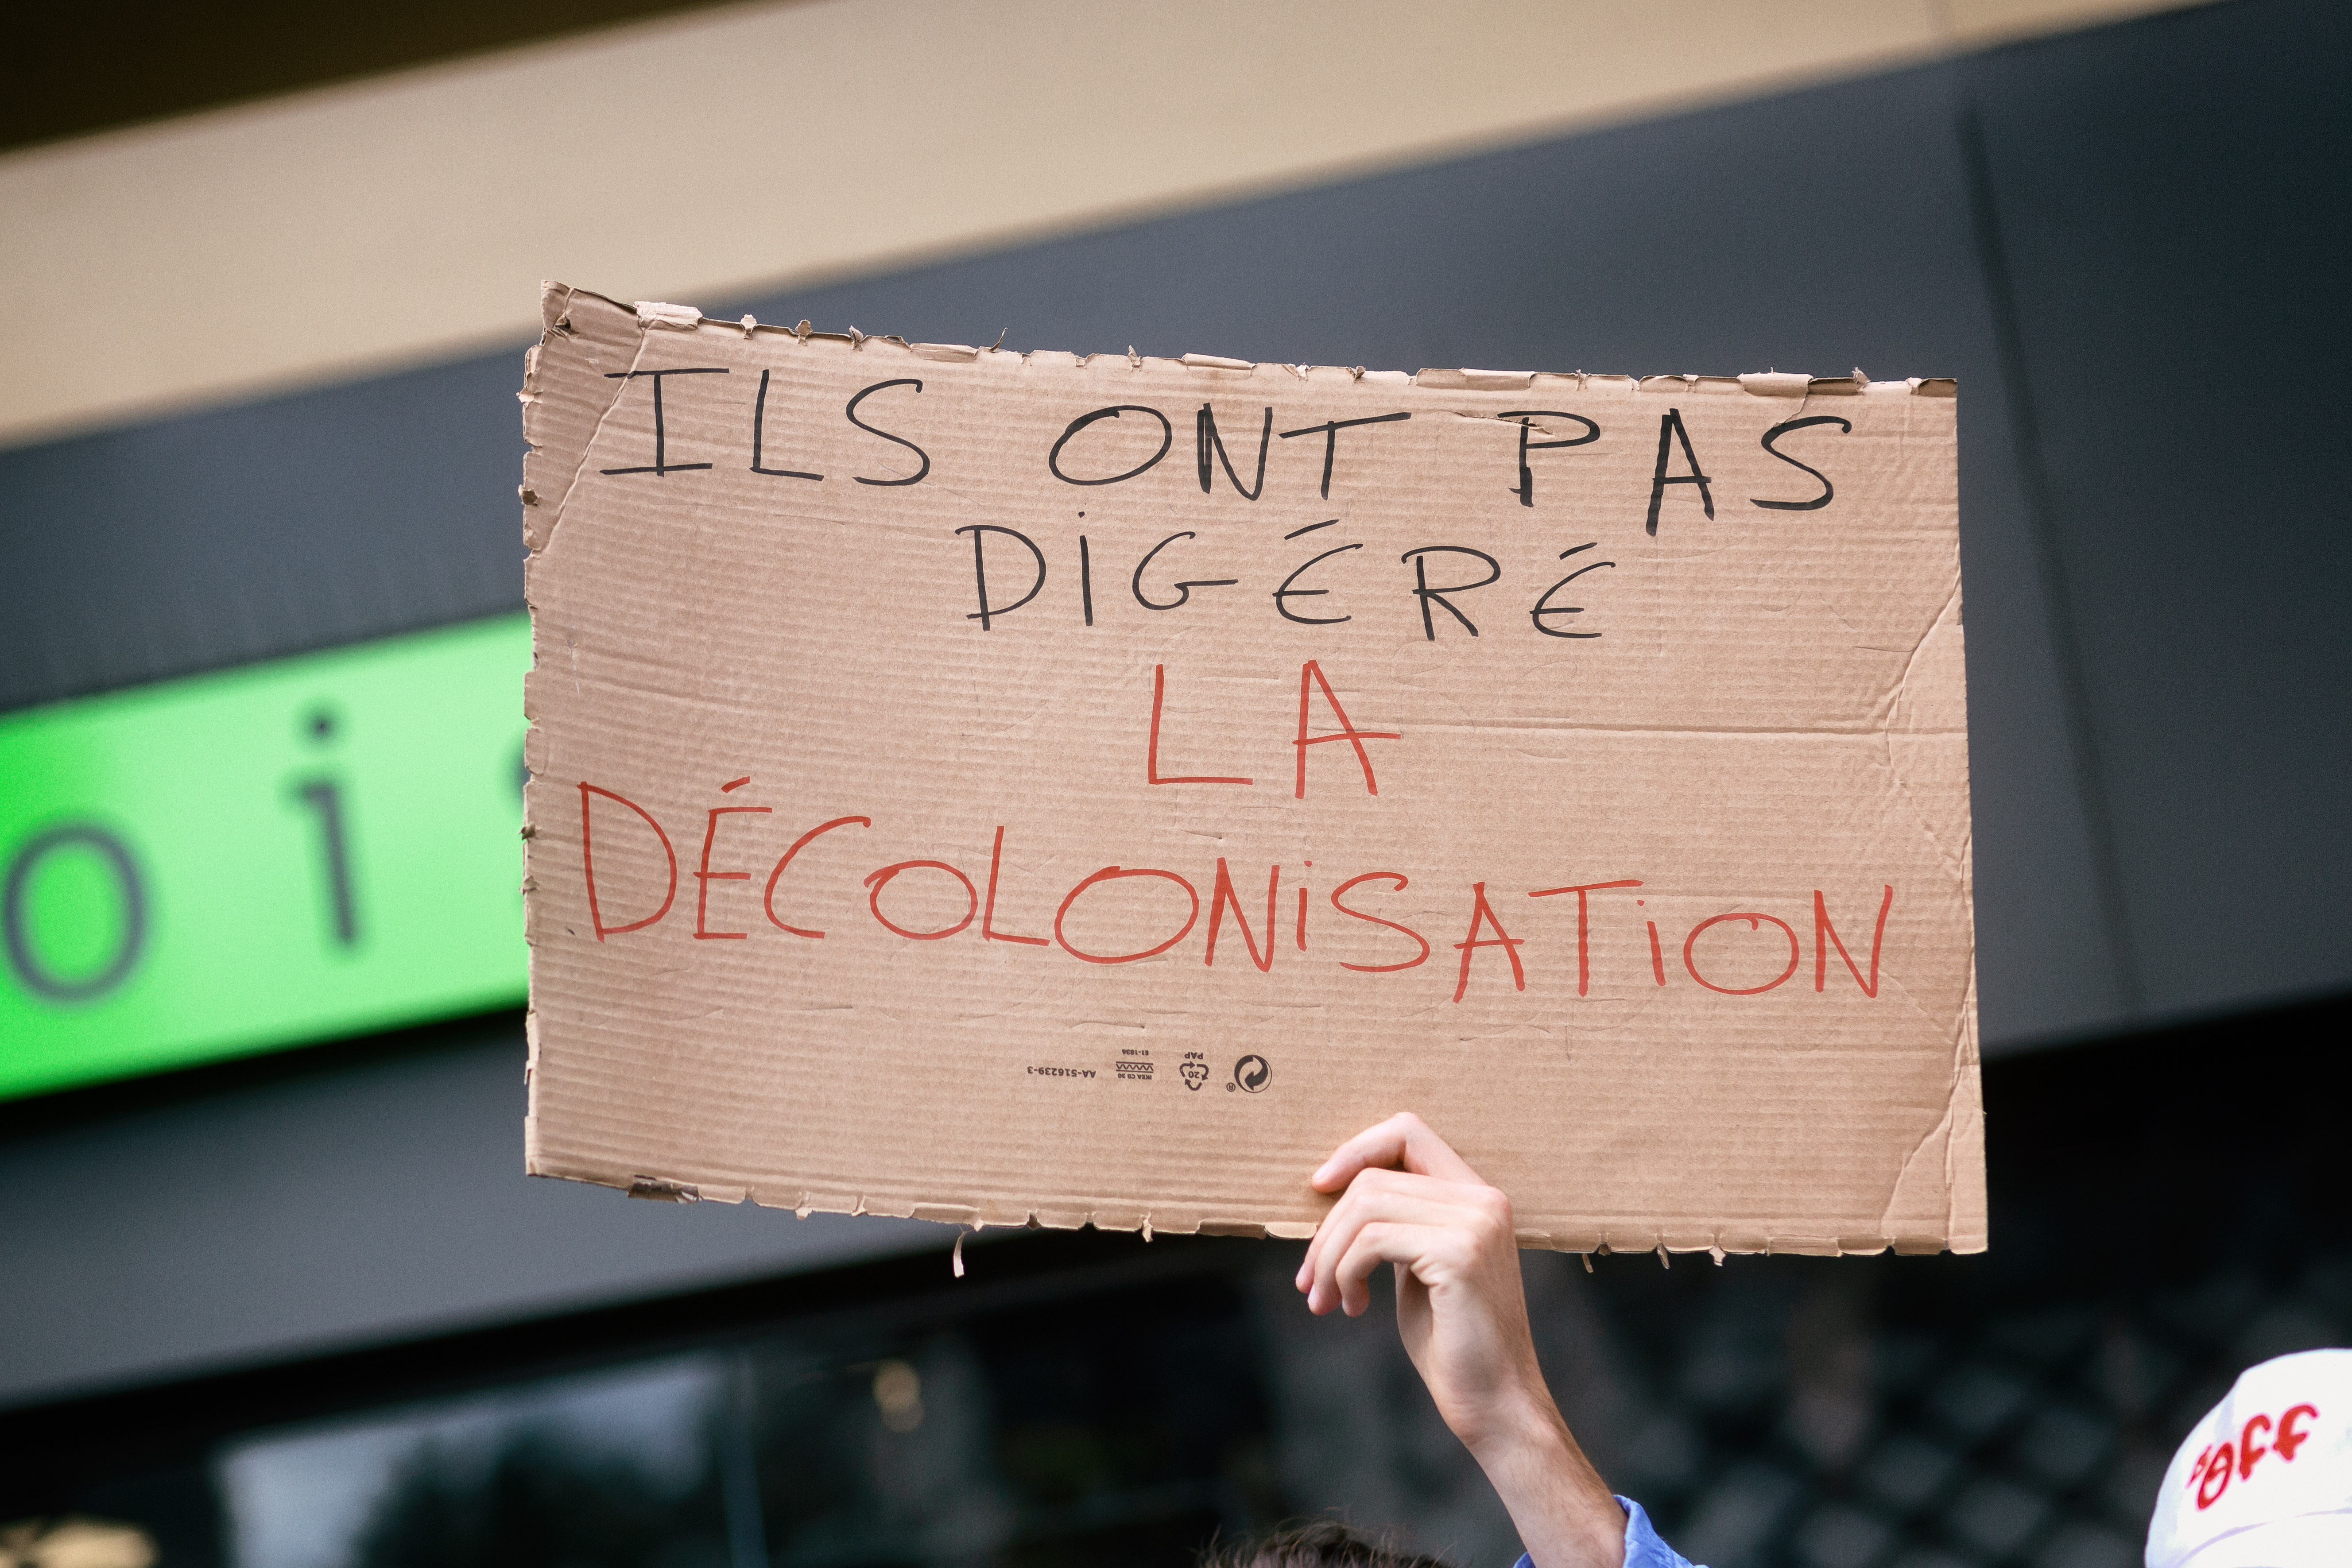 ILS ONT PAS
DiGÉRÉ
LA
DÉCOLONiSATiON
AA-516239-3
IKEA CB 30
E1-1036
20
PAP
®
oi
"Off